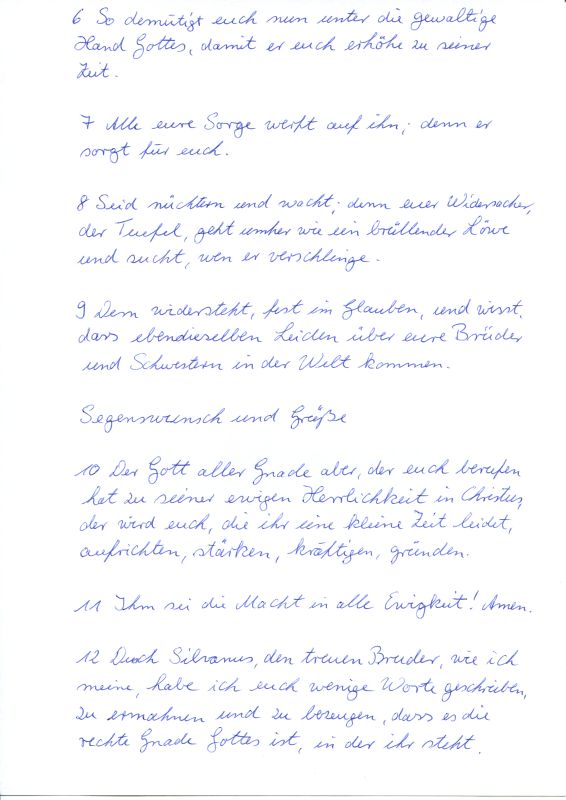 6 So demütigt euch nun unter die gewaltige
Hand Gottes, damit er euch erhöhe zu seiner
Zeit.
7 Alle eure Sorge werft auf ihn; denn er
sorgt für euch.
8 Seid nüchtern und wacht; denn euer Widersacher,
der Teufel, geht umher wie ein brüllender Löwe
und sucht, wen er verschlinge.
9 Dem widersteht, fest im Glauben, und wisst,
dass ebendieselben Leiden über eure Brüder
und Schwestern in der Welt kommen.
Segenswunsch und Grüße
10 Der Gott aller Gnade aber, der euch berufen
hat zu seiner ewigen Herrlichkeit in Christus,
der wird euch, die ihr eine kleine Zeit leidet,
aufrichten, stärken, kräftigen, gründen.
11 Ihm sei die Macht in alle Ewigkeit! Amen.
12 Durch Silvanus, den treuen Bruder, wie ich
meine, habe ich euch wenige Worte geschrieben,
zu ermahnen und zu bezeugen, dass es die
rechte Gnade Gottes ist, in der ihr steht.